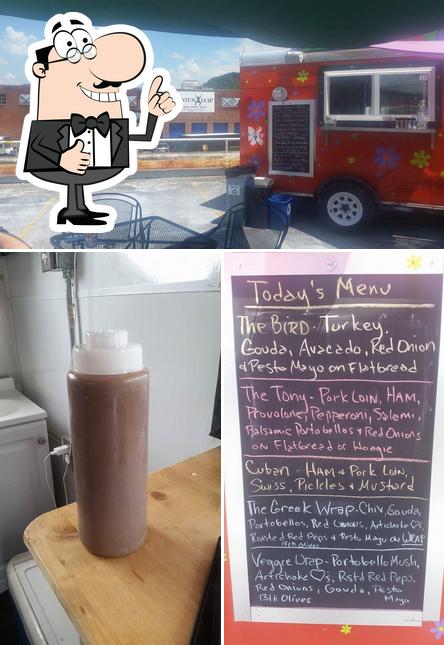 Today's Menu
The BIRD - Turkey,
Gouda, Avacado, Red Onion
& Pesto Mayo on Flatbread
The Tony - Pork LOIN, HAM,
Provolone, Pepperoni, Salami,
Balsamic Portobellos & Red Onions
on Flatbread or Hoagie
Cuban - HAM & Pork Loin,
Swiss, Pickles & Mustard
The Greek Wrap - Chix, Gouda,
Portobellos, Red Onions, Artichoke ♡s,
Roasted Red Peps & Pesto Mayo on WRAP
Blk Olives
Veggie Wrap - Portobello Mush,
Artichoke ♡s, Rstd Red Peps.
Red Onions, Gouda, Pesto
Blk Olives Mayo